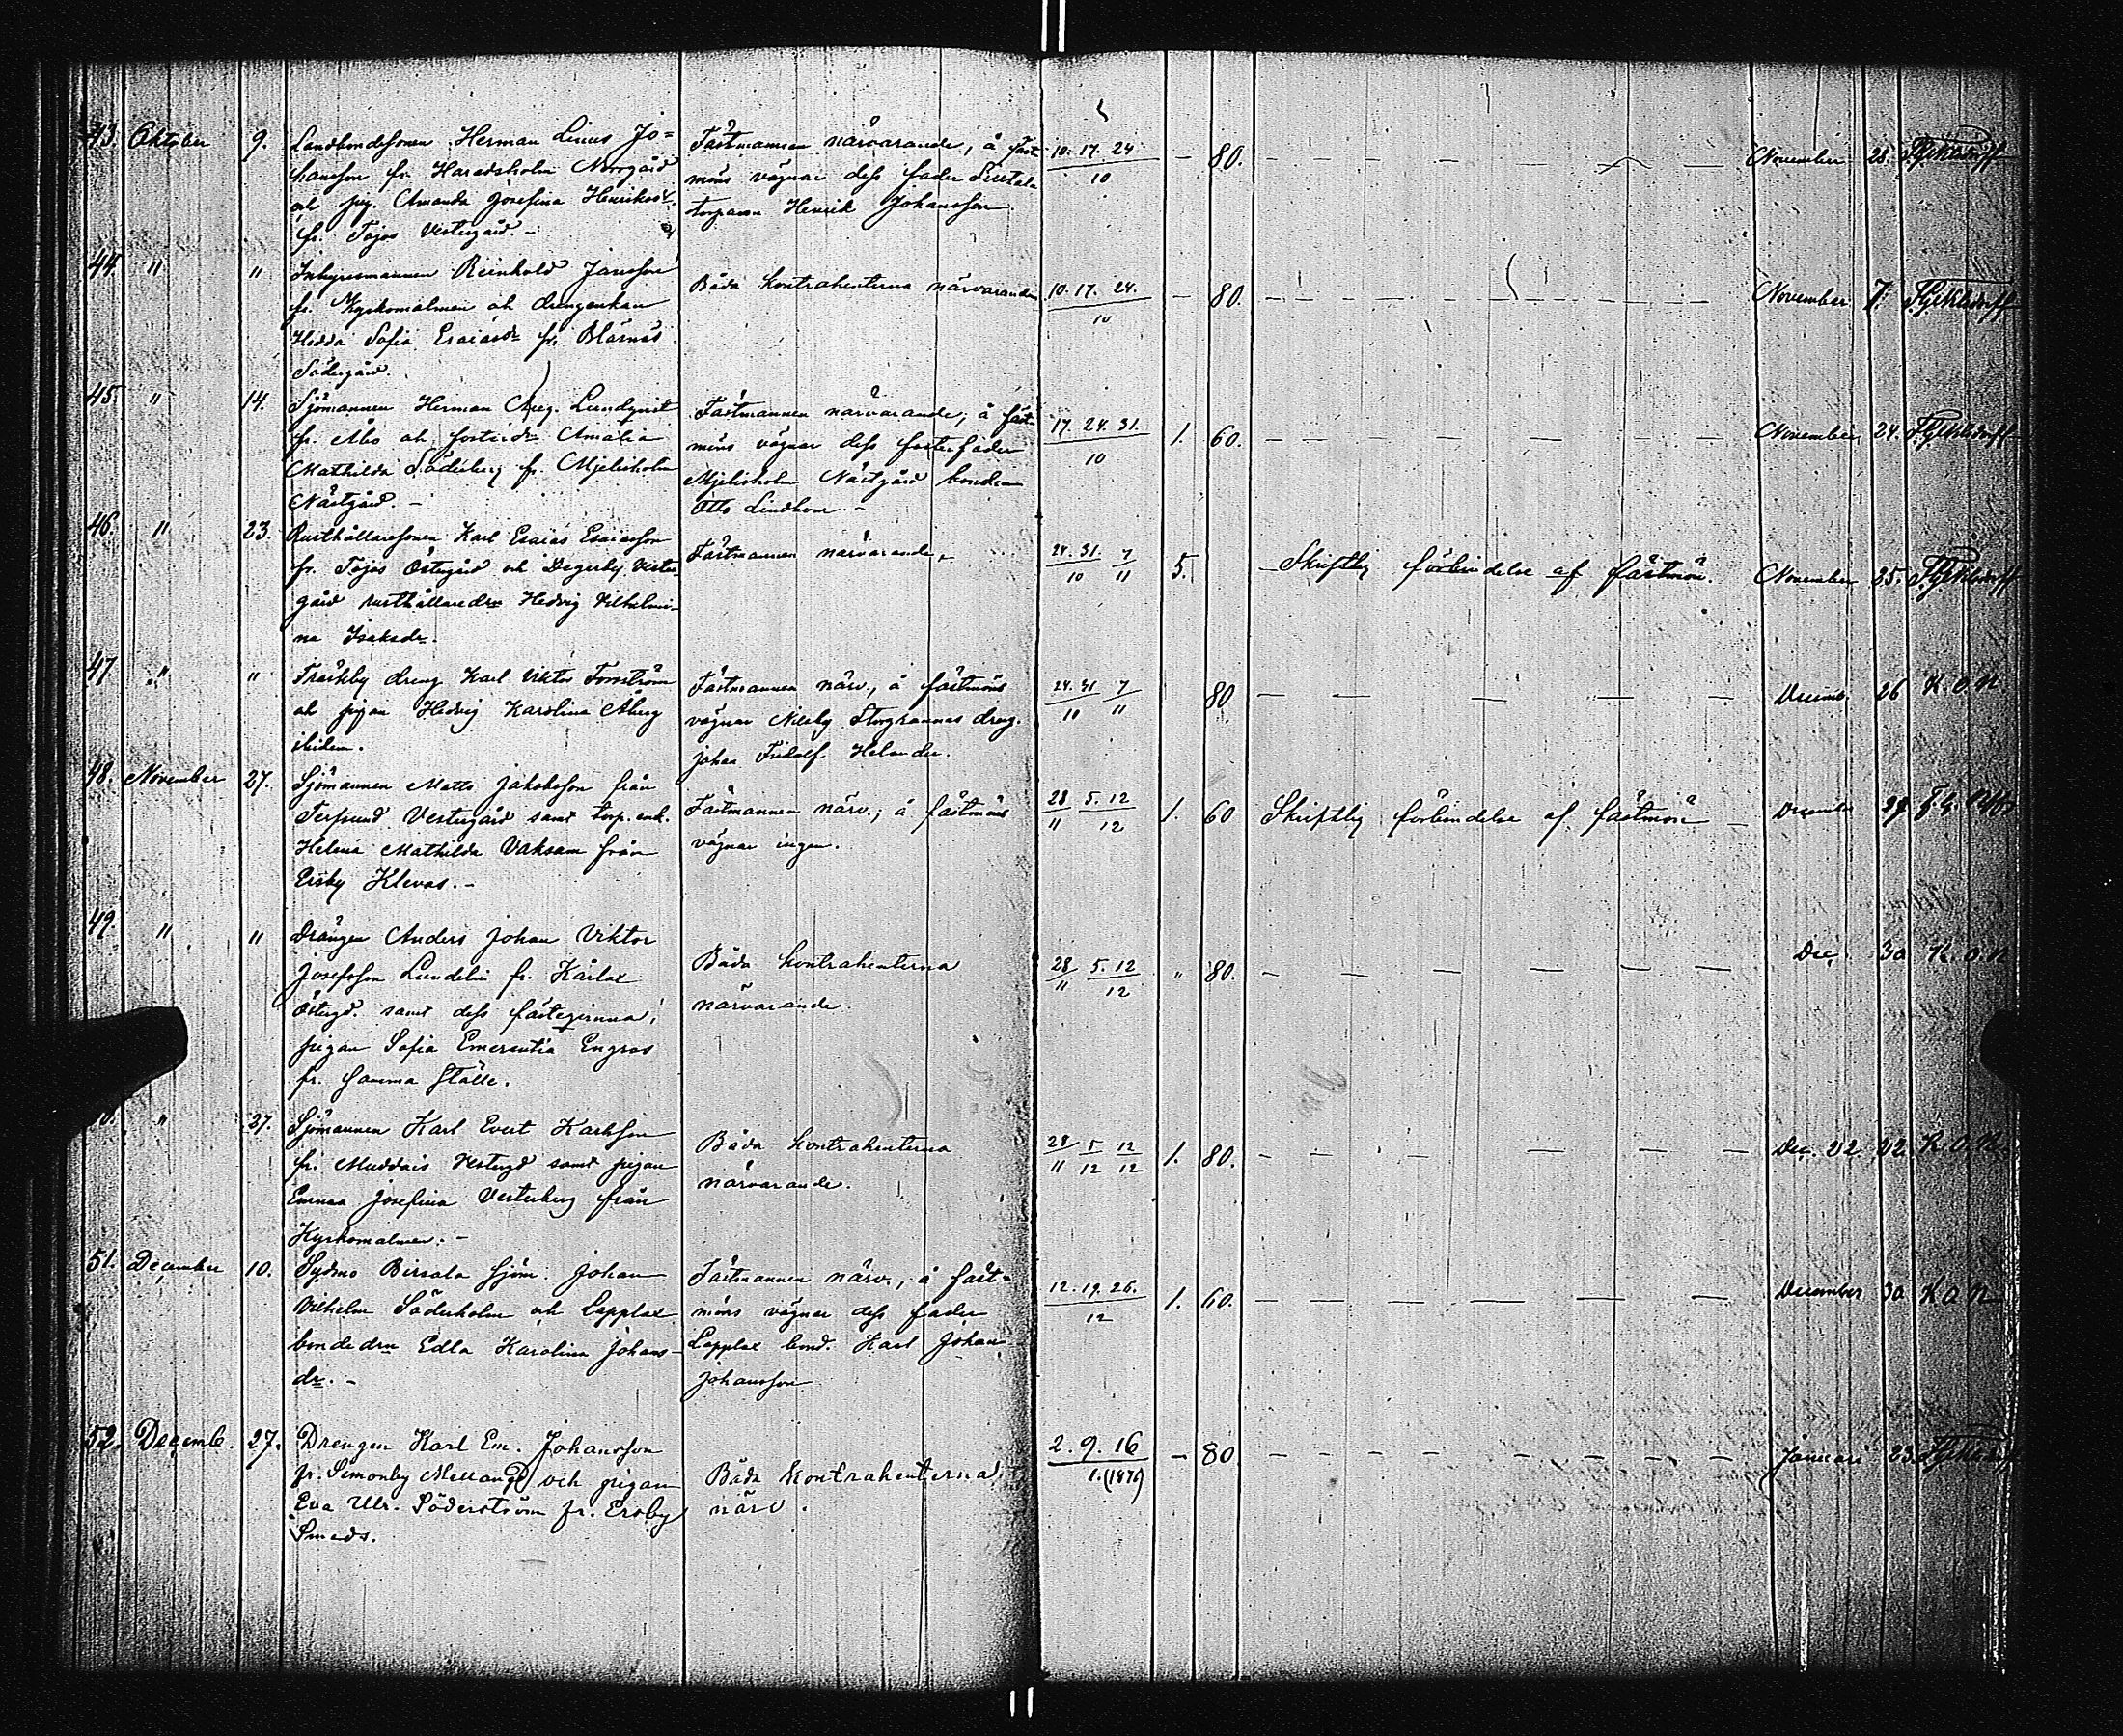 43. Oktober 9. Landbondesonen Herman Linus Jo=
hansson fr. Haradsholm Norrgård
och pig. Amanda Josefina Henriksd.
fr. Tojos Vestergård. -
Fästmannen närvarande, å fäst
möns vägnar dess fader
torparen Henrik Johansson
10. 17. 24
10
- 80. November 28.
44. " " Inhyresmannen Reinhold Jansson
fr. Kyrkomalmen och drengenkan
Hedda Sofia Esaiasdr fr. Bläsnäs
Södergård.
Båda kontrahenterna närvarande
10. 17. 24.
10
- 80. November 7.
45. " 14. Sjömannen Herman Aug. Lundqvist
fr. Åbo och fosterdr Amalia
Mathilda Söderberg fr. Mjelisholm
Nästgård. -
Fästmannen närvarande; å fäst
möns vägnar dess fosterfader
Mjelisholm Nästgård bonden
Otto Lindhom. -
17. 24. 31.
10
1. 60. November 24.
46. " 23. Rusthållaresonen Karl Esaias Esaiasson
fr. Tojos Östergård och Degerby Vester-
gård rusthållaredr Hedvig Vilhelmi-
na Isaksdr.
Fästmannen närvarande.
24. 31. 7
10 11
5. Skriftlig förbindelse af fästmön. November 25.
47. " " Träskby dreng Karl Viktor Forsström
och pigan Hedvig Karolina Åberg
ibidem.
Fästmannen närv., å fästmöns
vägnar Nilsby Storgrannas dreng.
Johan Fridolf Helander.
24. 31 7
10 11
80 Decemb. 26 K.O.N
48. November 27. Sjömannen Matts Jakobsson från
Terfsund Vestergård samt torp. enk.
Helena Mathilda Vaksam från
Ersby Klevas. -
Fästmannen närv.; å fästmöns
vägnar ingen.
28 5. 12
11 12
1. 60 Skriftlig förbindelse af fästmön December
49. " " Drängen Anders Johan Viktor
Josefsson Lundelin fr. Kärlax
Östergd. samt dess fästeqvinna,
pigan Sofia Emerentia Engros
fr. samma ställe.
Båda kontrahenterna
närvarande.
28 5. 12
11 12
" 80. Dec. 30 K.O.N
" 27. Sjömannen Karl Evert Karlsson
fr. Muddais Vestergd samt pigan
Emma Josefina Vesterberg från
Kyrkomalmen. -
Båda kontrahenterna
närvarande.
28 5 12
11 12 12
1. 80. Dec. 22 22. K.O.N.
51. December 10. Sydmo Birsala sjöm. Johan
Vilhelm Söderholm och Lapplax
bondedrn Edla Karolina Johans-
dr. -
Fästmannen närv., å fäst=
möns vägnar dess fader
Lapplax bond. Karl Johan
Johansson
12. 19. 26.
12
1. 60. December 30 K.O.N
52. Decemb. 27. Drengen Karl Em. Johansson
fr. Simonby Mellangd och pigan
Eva Ulr. Söderström fr. Ersby
Smeds.
Båda kontrahenterna
närv.
2. 9. 16
1. (1876)
- 80 Januari 23.